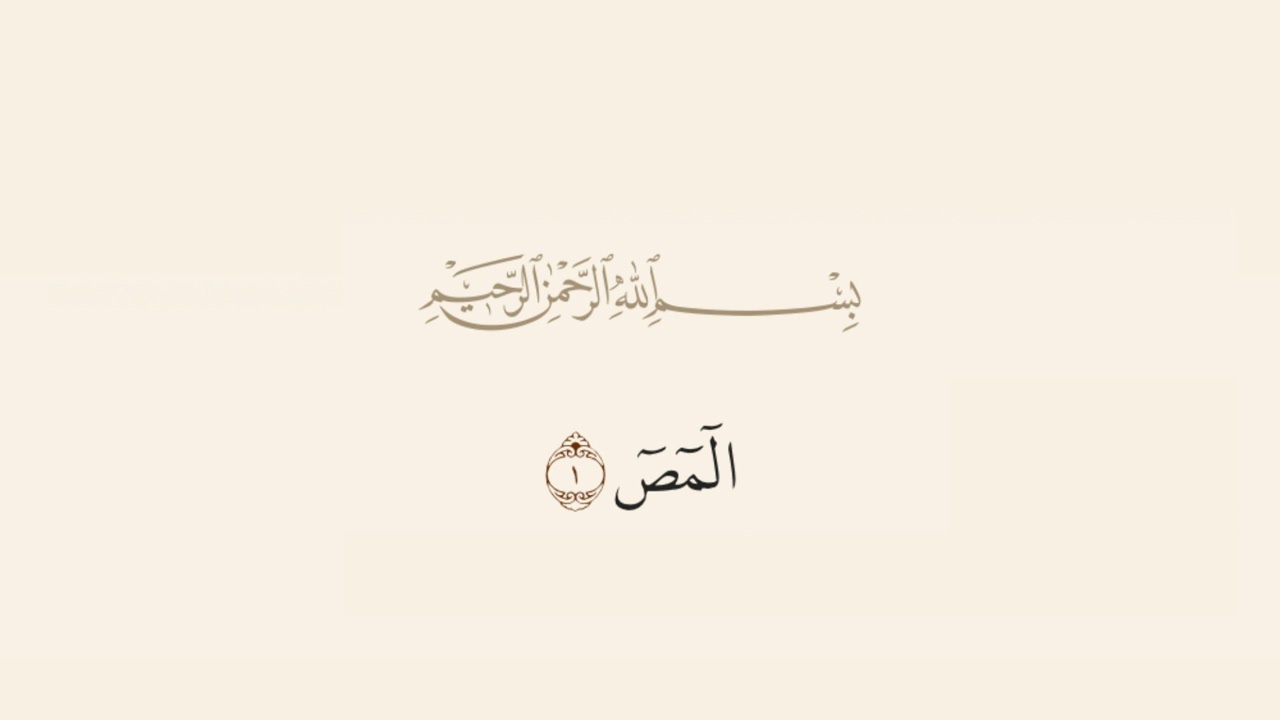 بِسْمِ ٱللَّهِ ٱلرَّحْمَٰنِ ٱلرَّحِيمِ
الٓمٓصٓ ١